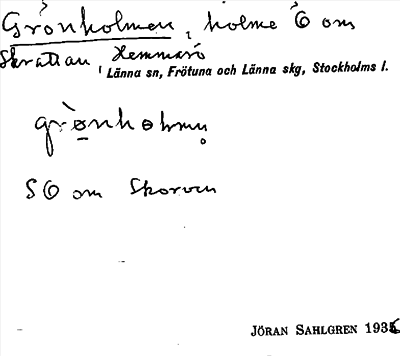 Grönholmen, holme Ö om
Skrattan, Hemmarö
Länna sn, Frötuna och Länna skg, Stockholms l.
grònholmn̥
SÖ om Skorven
JÖRAN SAHLGREN 1936